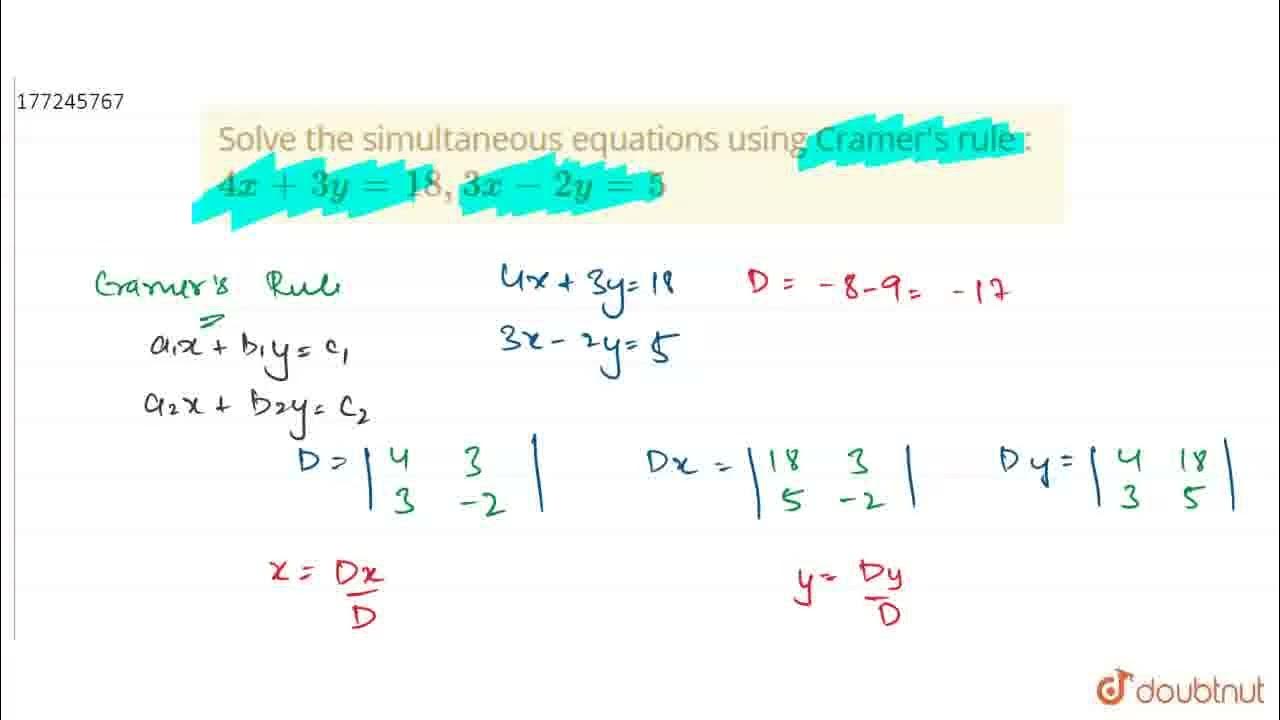 177245767
Solve the simultaneous equations using Cramer's rule :
4x + 3y = 18, 3x − 2y = 5
Cramer's Rule
4x + 3y = 18
D = -8-9 = -17
a₁x + b₁y = c₁
3x - 2y = 5
a₂x + b₂y = c₂
D = | 4 3 |
| 3 -2 |
Dx = | 18 3 |
| 5 -2 |
Dy = | 4 18 |
| 3 5 |
x = Dx
D
y = Dy
D
doubtnut